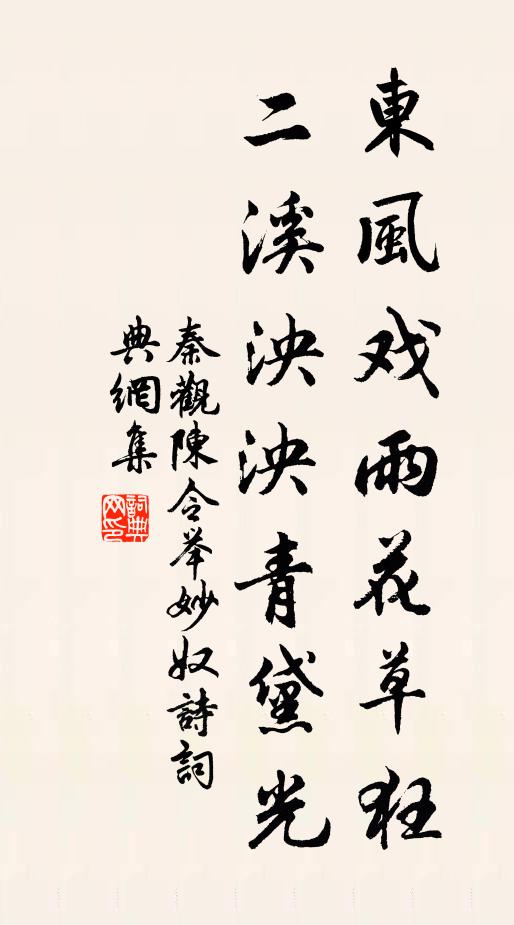 東風戏雨花草狂
二溪泱泱青黛光
秦觀陳令举妙奴詩詞
典網集
詞典网印